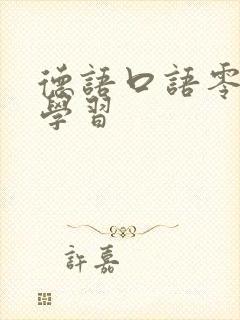 德語口語零
學習
許嘉